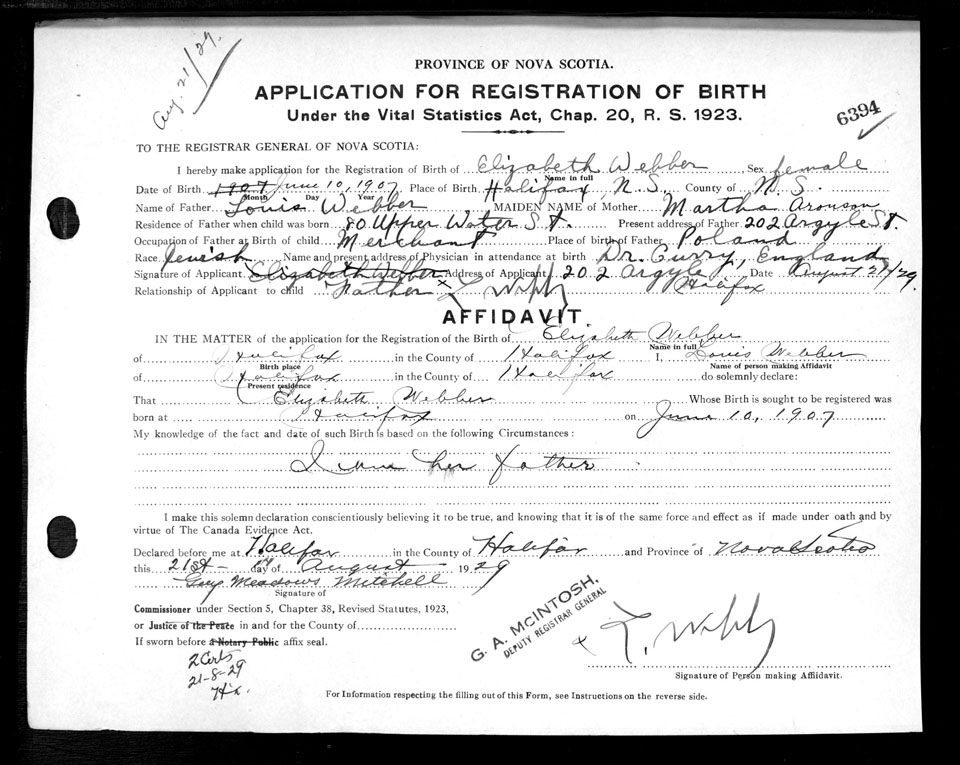 Aug. 21/29.
PROVINCE OF NOVA SCOTIA.
APPLICATION FOR REGISTRATION OF BIRTH
Under the Vital Statistics Act, Chap. 20, R. S. 1923.
6394
TO THE REGISTRAR GENERAL OF NOVA SCOTIA:
I hereby make application for the Registration of Birth of Elizabeth Webber Sex female
Name in full
Date of Birth 1907 June 10, 1907 Place of Birth Halifax N. S. County of N. S.
Month Day Year
Name of Father Louis Webber MAIDEN NAME of Mother Martha Aronson
Residence of Father when child was born 80 Upper Water St. Present address of Father 202 Argyle St.
Occupation of Father at Birth of child Merchant Place of birth of Father Poland
Race Jewish Name and present address of Physician in attendance at birth Dr. Curry, England
Signature of Applicant Elizabeth Webber Address of Applicant 202 Argyle Date August 21/29.
Relationship of Applicant to child Father x L Halifax
AFFIDAVIT.
IN THE MATTER of the application for the Registration of the Birth of Elizabeth Webber
Name in full
of Halifax in the County of Halifax I, Louis Webber
Birth place Name of person making Affidavit
of Halifax in the County of Halifax do solemnly declare:
Present residence
That Elizabeth Webber Whose Birth is sought to be registered was
born at Halifax on June 10, 1907
My knowledge of the fact and date of such Birth is based on the following Circumstances:
I am her father
I make this solemn declaration conscientiously believing it to be true, and knowing that it is of the same force and effect as if made under oath and by
virtue of The Canada Evidence Act.
Declared before me at Halifax in the County of Halifax and Province of Nova Scotia
this 21st day of August 1929
Guy Meadows Mitchell
Signature of
Commissioner under Section 5, Chapter 38, Revised Statutes, 1923,
or Justice of the Peace in and for the County of
If sworn before a Notary Public affix seal.
G. A. MCINTOSH,
DEPUTY REGISTRAR GENERAL
x L.
Signature of Person making Affidavit.
2 Certs
21-8-29
Hx.
For Information respecting the filling out of this Form, see Instructions on the reverse side.